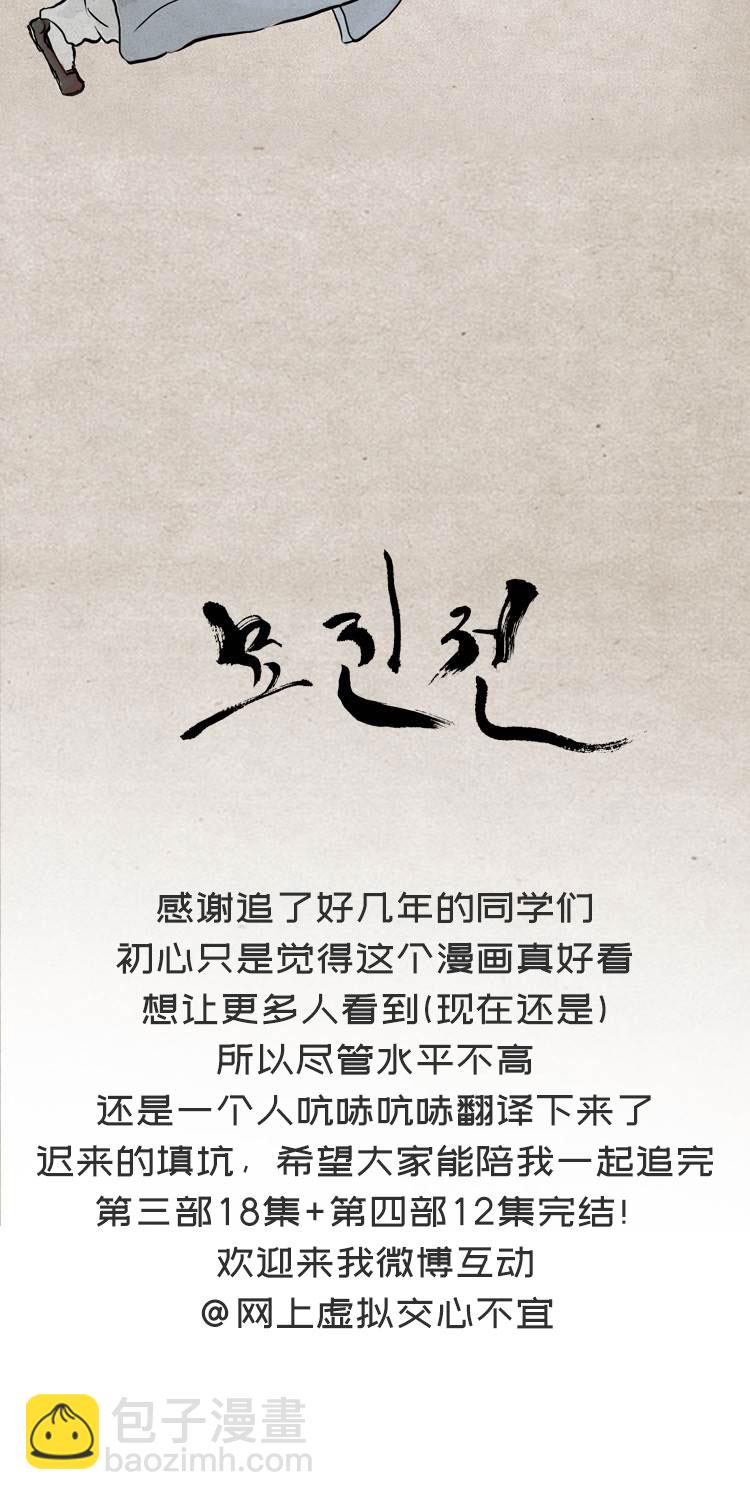 묘진전
感谢追了好几年的同学们
初心只是觉得这个漫画真好看
想让更多人看到(现在还是)
所以尽管水平不高
还是一个人吭哧吭哧翻译下来了
迟来的填坑，希望大家能陪我一起追完
第三部18集+第四部12集完结!
欢迎来我微博互动
@网上虚拟交心不宜
包子漫畫
baozimh.com